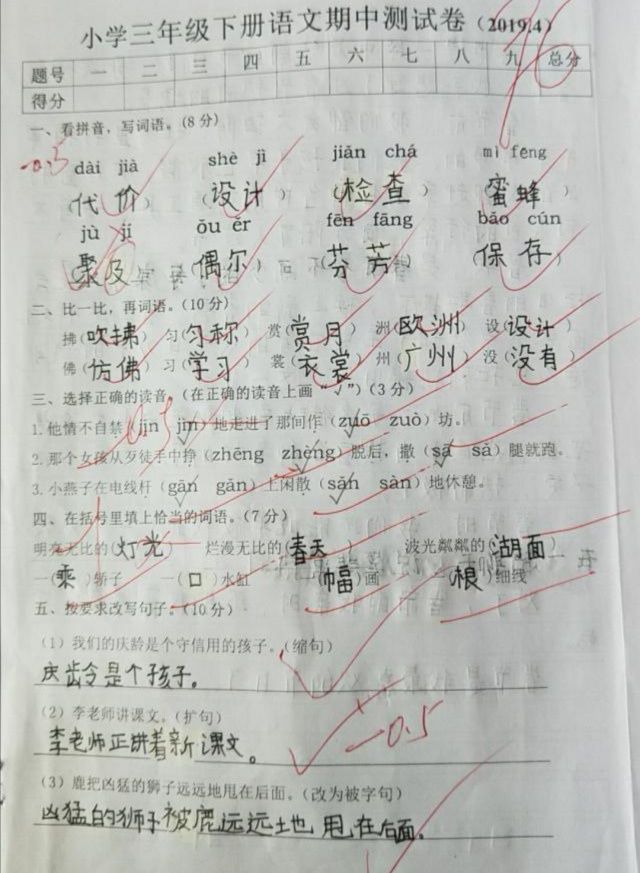 小学三年级下册语文期中测试卷（2019.4）
题号 一 二 三 四 五 六 七 八 九 总分
得分
一、看拼音，写词语。(8分)
-0.5
dài jià shè jì jiǎn chá mì fēng
(代价) (设计) (检查) (蜜蜂)
jù jí ǒu ěr fēn fāng bǎo cún
(聚及) (偶尔) (芬芳) (保存)
二、比一比，再词语。(10分)
拂(吹拂) 匀(匀称) 赏(赏月) 洲(欧洲) 设(设计)
佛(仿佛) 习(学习) 裳(衣裳) 州(广州) 没(没有)
三、选择正确的读音。(在正确的读音上画“√”)(3分)
1.他情不自禁(jīn jìn)地走进了那间作(zuō zuò)坊。
2.那个女孩从歹徒手中挣(zhēng zhèng)脱后，撒(sā sǎ)腿就跑。
3.小燕子在电线杆(gān gǎn)上闲散(sǎn sàn)地休憩。
四、在括号里填上恰当的词语。(7分)
明亮无比的(灯光) 烂漫无比的(春天) 波光粼粼的(湖面)
一(乘)轿子 一(口)水缸 一(幅)画 一(根)细线
五、按要求改写句子。(10分)
(1) 我们的庆龄是个守信用的孩子。(缩句)
庆龄是个孩子。
(2) 李老师讲课文。(扩句)
-0.5
李老师正讲着新课文。
(3) 鹿把凶猛的狮子远远地甩在后面。(改为被字句)
凶猛的狮子被鹿远远地甩在后面。